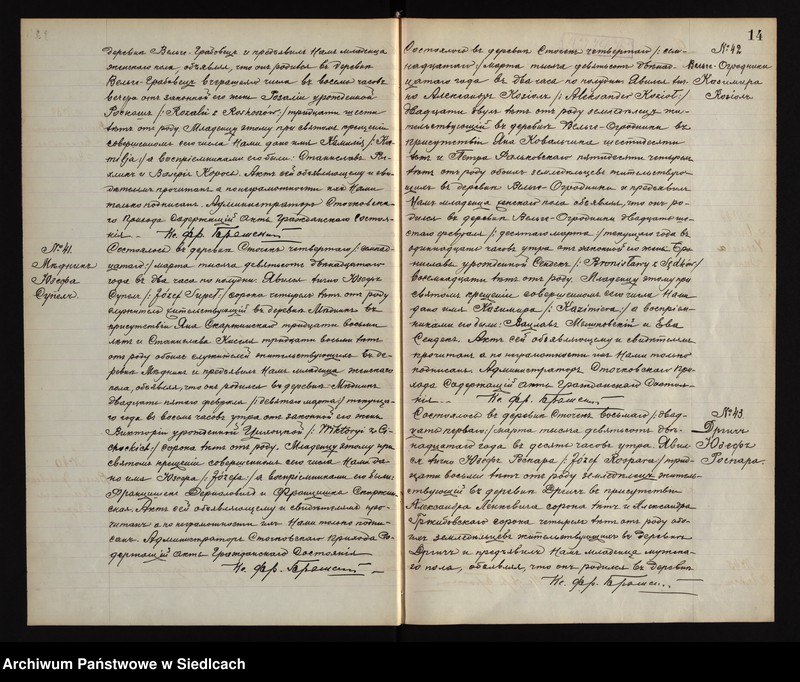 деревни Вельге-Грабовец и предъявил Нам младенца
женского пола, объявляя, что он родился в деревне
вечера от законной его жены Розалии урожденной
тридцати шести
лет от роду. Младенцу этому при святом крещении
совершенном сего числа Нами дано имя
а восприемниками его были: Станислав
и Валерия Акт сей объявляющему и сви-
детелям прочитан а по неграмотности их Нами
только подписан. Администратор Сточеска-
го Прихода Содержащий Акты Гражданского Состоя-
ния
№ 41.
Мендник
Юзефа
Супел.
Состоялось в деревне Сточек четвертого /: семнад-
цатого:/ марта тысяча девятьсот двенадцатого
года в два часа по полудни. Явился лично Юзеф
Супел /: Józef Supeł:/ сорока четырех лет от роду
служитель жительствующий в деревне Мендник в
присутствии Яна тридцати восьми
лет и Станислава Кисели тридцати восьми лет
от роду обоих служителей жительствующих в де-
ревне Мендник и предъявил Нам младенца женского
пола, объявляя, что он родился в деревне Мендник
двадцать пятого февраля /: девятого марта:/ текуще-
го года в восемь часов утра от законной его жены
Виктории урожденной /: Wiktoryi z Ci-
сорока лет от роду. Младенцу этому при
святом крещении совершенном сего числа Нами да-
но имя Юзефа /: Józefa:/ а восприемниками его были:
Францишек и Францишка
Акт сей объявляющему и свидетелям про-
читан а по неграмотности их Нами только подпи-
сан. Администратор Сточеского Прихода Со-
держащий Акты Гражданского Состояния
Кс. Фр.
14
Состоялось в деревне Сточек четвертого /: сем-
надцатого:/ марта тысяча девятьсот двенад-
цатого года в два часа по полудни. Явился лич-
но Александр Козіол /: Aleksander Kozioł:/
двадцати двух лет от роду земледелец жи-
тельствующий в деревне Вельге-Огродники в
присутствии Яна Ковальчика шестидесяти
лет и Петра пятидесяти четырех
лет от роду обоих земледельцев жительствую-
щих в деревне Вельге-Огродники и предъявил
Нам младенца женского пола объявляя, что он ро-
дился в деревне Вельге-Огродники двадцать ше-
стого февраля /: десятого марта:/ текущего года в
одиннадцать часов утра от законной его жены Бро-
ниславы урожденной Сендек /: Bronisławy z Sędków:/
восемнадцати лет от роду. Младенцу этому при
святом крещении совершенном сего числа Нами
дано имя Казимира /: Kazimiera:/ а восприем-
никами его были: Вацлав и Ева
Сендек Акт сей объявляющему и свидетелям
прочитан а по неграмотности их Нами только
подписан. Администратор Сточеского При-
хода Содержащий Акты Гражданского Состоя-
ния
Кс. Фр.
№ 42
Вельге-Огродники
Казимира
Козіол
Состоялось в деревне Сточек восьмого /: двад-
цать первого:/ марта тысяча девятьсот две-
надцатого года в десять часов утра. Явил-
ся лично Юзеф Роспара /: Józef Rozpara:/ трид-
цати восьми лет от роду земледелец житель-
ствующий в деревне Дргич в присутствии
Александра сорока лет и Александра
Гржибовского сорока четырех лет от роду обо-
их земледельцев жительствующих в деревне
Дргич и предъявил Нам младенца мужска-
го пола, объявляя, что он родился в деревне
Кс. Фр.
№ 43.
Дргич
Юзеф
Роспара.
Archiwum Państwowe w Siedlcach